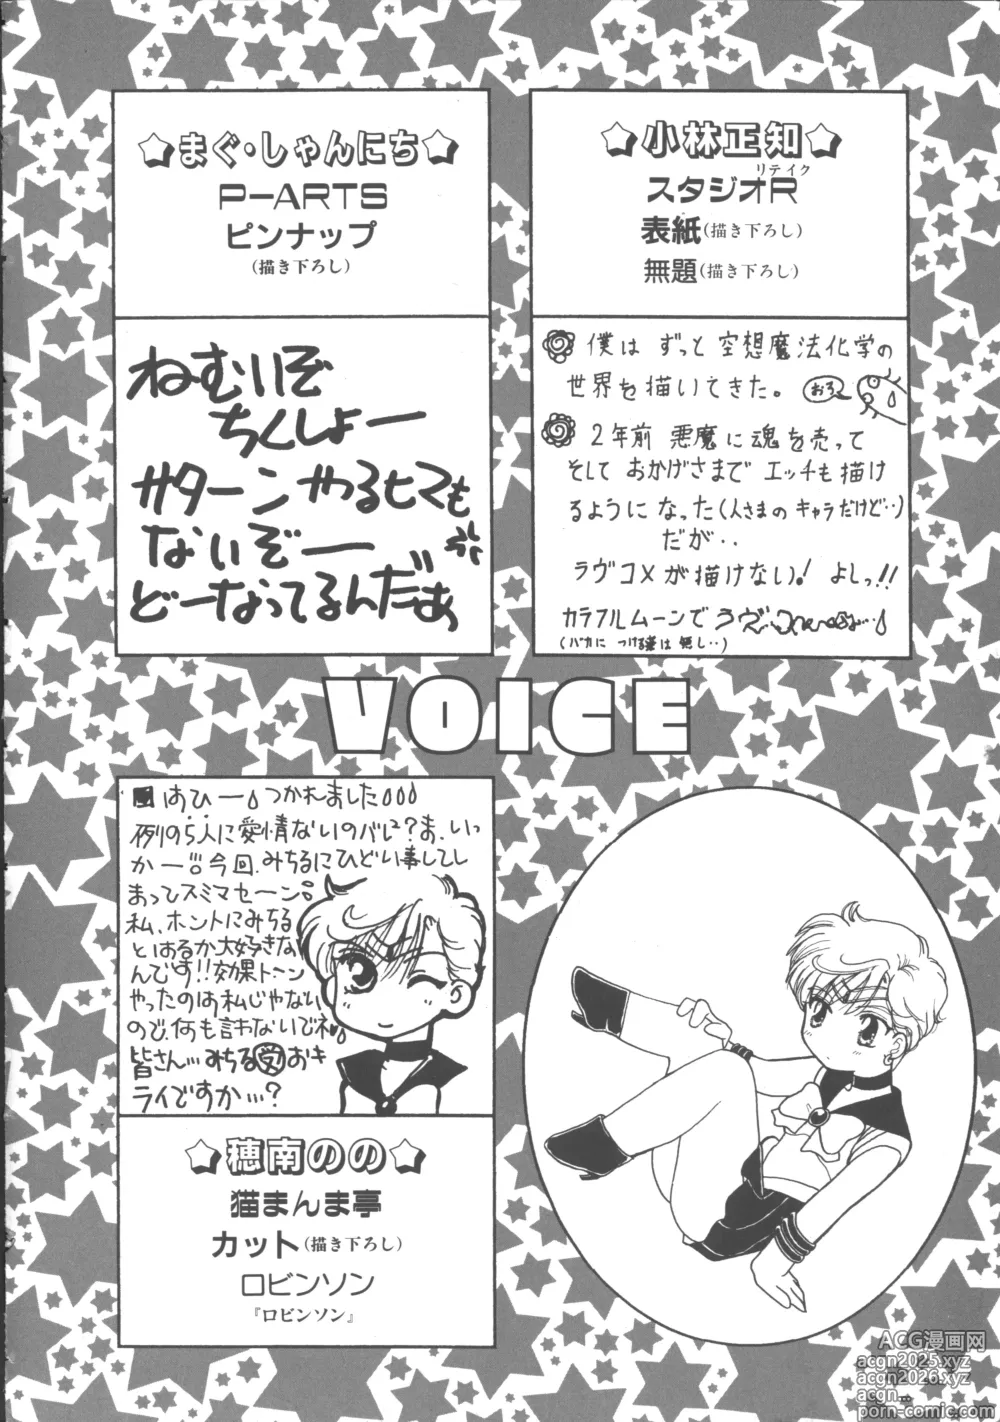 まぐ・しゃんにち
P-ARTS
ピンナップ
(描き下ろし)
ねむいぞ
ちくしょー
サターンやるヒマも
ないぞー
どーなってるんだぁ
小林正知
スタジオR
リテイク
表紙(描き下ろし)
無題(描き下ろし)
僕は ずっと 空想魔法化学の
世界を描いてきた。
2年前 悪魔に魂を売って
そして おかげさまで エッチも描け
るように なった(人さまの キャラだけど‥)
だが‥
ラヴコメが描けない! よしっ!!
カラフルムーンで
(バカに つける薬は 無し‥)
VOICE
はひー つかれました
例の5人に愛情ないのバレた?ま、いっ
かー!!今回、みちるにひどい事してし
まってスミマセーン
私、ホントにみちる
とはるか大好きな
んです!!効果トーン
やったのは私じゃない
ので、何も言わないでネ
皆さん…みちる受おキ
ライですか…?
穂南のの
猫まんま亭
カット(描き下ろし)
ロビンソン
『ロビンソン』
ACG漫画网
acgn2025.xyz
acgn2026.xyz
acgn...
porn-comic.com